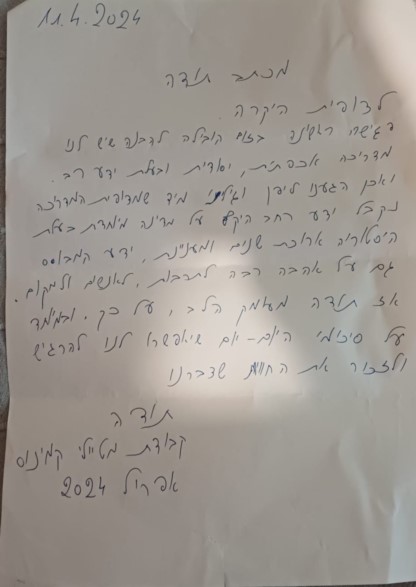 11.4.2024
מכתב תודה
לצופית היקרה.
פגישה ראשונה בזום הובילה להבנה שיש לנו
מדריכה אכפתית, יסודית ובעלת ידע רב.
ואכן הגענו ליפן וגילינו מיד שמצופית המדריכה
נקבל ידע רחב היקף על מדינה מיוחדת בעלת
היסטוריה ארוכת שנים ומעניינת, ידע המבוסס
גם על אהבה רבה לתרבות, לאנשים ולמקום.
אז תודה מעומק הלב, על כך. ובמיוחד
על סיכומי היום-יום שיאפשרו לנו להרגיש
ולזכור את החוויות שצברנו
תודה
קבוצת מטיילי קמינוס
אפריל 2024